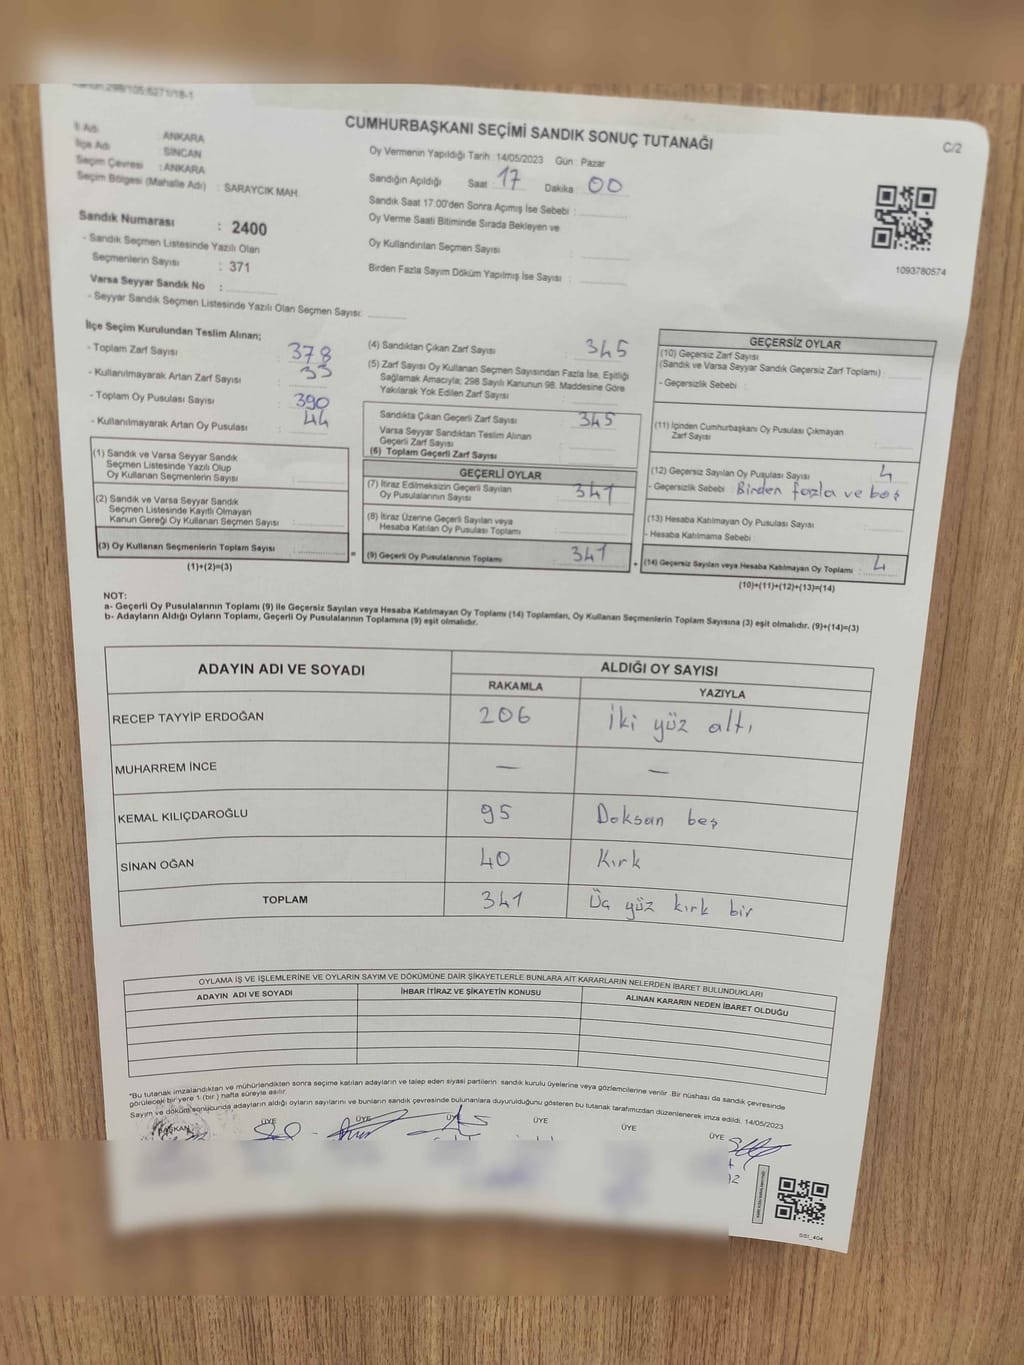 CUMHURBAŞKANI SEÇİMİ SANDIK SONUÇ TUTANAĞI
C/2
İl Adı : ANKARA
İlçe Adı : SİNCAN
Seçim Çevresi : ANKARA
Seçim Bölgesi (Mahalle Adı) : SARAYCIK MAH.
Oy Vermenin Yapıldığı Tarih : 14/05/2023 Gün : Pazar
Sandığın Açıldığı Saat : 17 Dakika : 00
Sandık Saat 17:00'den Sonra Açımış İse Sebebi :
Oy Verme Saati Bitiminde Sırada Bekleyen ve
Oy Kullandırılan Seçmen Sayısı :
Birden Fazla Sayım Döküm Yapılmış İse Sayısı :
1093780574
Sandık Numarası : 2400
- Sandık Seçmen Listesinde Yazılı Olan
Seçmenlerin Sayısı : 371
Varsa Seyyar Sandık No :
- Seyyar Sandık Seçmen Listesinde Yazılı Olan Seçmen Sayısı:
İlçe Seçim Kurulundan Teslim Alınan;
- Toplam Zarf Sayısı : 378
- Kullanılmayarak Artan Zarf Sayısı : 33
- Toplam Oy Pusulası Sayısı : 390
- Kullanılmayarak Artan Oy Pusulası : 44
(1) Sandık ve Varsa Seyyar Sandık
Seçmen Listesinde Yazılı Olup
Oy Kullanan Seçmenlerin Sayısı :
(2) Sandık ve Varsa Seyyar Sandık
Seçmen Listesinde Kayıtlı Olmayan
Kanun Gereği Oy Kullanan Seçmen Sayısı :
(3) Oy Kullanan Seçmenlerin Toplam Sayısı :
(1)+(2)=(3)
(4) Sandıktan Çıkan Zarf Sayısı : 345
(5) Zarf Sayısı Oy Kullanan Seçmen Sayısından Fazla İse, Eşitliği
Sağlamak Amacıyla; 298 Sayılı Kanunun 98. Maddesine Göre
Yakılarak Yok Edilen Zarf Sayısı :
Sandıkta Çıkan Geçerli Zarf Sayısı : 345
Varsa Seyyar Sandıktan Teslim Alınan
Geçerli Zarf Sayısı :
(6) Toplam Geçerli Zarf Sayısı :
GEÇERLİ OYLAR
(7) İtiraz Edilmeksizin Geçerli Sayılan
Oy Pusulalarının Sayısı : 341
(8) İtiraz Üzerine Geçerli Sayılan veya
Hesaba Katılan Oy Pusulası Toplamı :
= (9) Geçerli Oy Pusulalarının Toplamı : 341 +
GEÇERSİZ OYLAR
(10) Geçersiz Zarf Sayısı
(Sandık ve Varsa Seyyar Sandık Geçersiz Zarf Toplamı) :
- Geçersizlik Sebebi :
(11) İçinden Cumhurbaşkanı Oy Pusulası Çıkmayan
Zarf Sayısı :
(12) Geçersiz Sayılan Oy Pusulası Sayısı : 4
- Geçersizlik Sebebi : Birden fazla ve boş
(13) Hesaba Katılmayan Oy Pusulası Sayısı :
- Hesaba Katılmama Sebebi :
(14) Geçersiz Sayılan veya Hesaba Katılmayan Oy Toplamı : 4
(10)+(11)+(12)+(13)=(14)
NOT:
a- Geçerli Oy Pusulalarının Toplamı (9) ile Geçersiz Sayılan veya Hesaba Katılmayan Oy Toplamı (14) Toplamları, Oy Kullanan Seçmenlerin Toplam Sayısına (3) eşit olmalıdır. (9)+(14)=(3)
b- Adayların Aldığı Oyların Toplamı, Geçerli Oy Pusulalarının Toplamına (9) eşit olmalıdır.
ADAYIN ADI VE SOYADI ALDIĞI OY SAYISI
RAKAMLA YAZIYLA
RECEP TAYYİP ERDOĞAN 206 İki yüz altı
MUHARREM İNCE — —
KEMAL KILIÇDAROĞLU 95 Doksan beş
SİNAN OĞAN 40 Kırk
TOPLAM 341 Üç yüz kırk bir
OYLAMA İŞ VE İŞLEMLERİNE VE OYLARIN SAYIM VE DÖKÜMÜNE DAİR ŞİKAYETLERLE BUNLARA AİT KARARLARIN NELERDEN İBARET BULUNDUKLARI
ADAYIN ADI VE SOYADI İHBAR İTİRAZ VE ŞİKAYETİN KONUSU ALINAN KARARIN NEDEN İBARET OLDUĞU
*Bu tutanak imzalandıktan ve mühürlendikten sonra seçime katılan adayların ve talep eden siyasi partilerin sandık kurulu üyelerine veya gözlemcilerine verilir. Bir nüshası da sandık çevresinde
görülecek bir yere 1 (bir) hafta süreyle asılır.
Sayım ve döküm sonucunda adayların aldığı oyların sayılarını ve bunların sandık çevresinde bulunanlara duyurulduğunu gösteren bu tutanak tarafımızdan düzenlenerek imza edildi. 14/05/2023
BAŞKAN ÜYE ÜYE ÜYE ÜYE ÜYE ÜYE